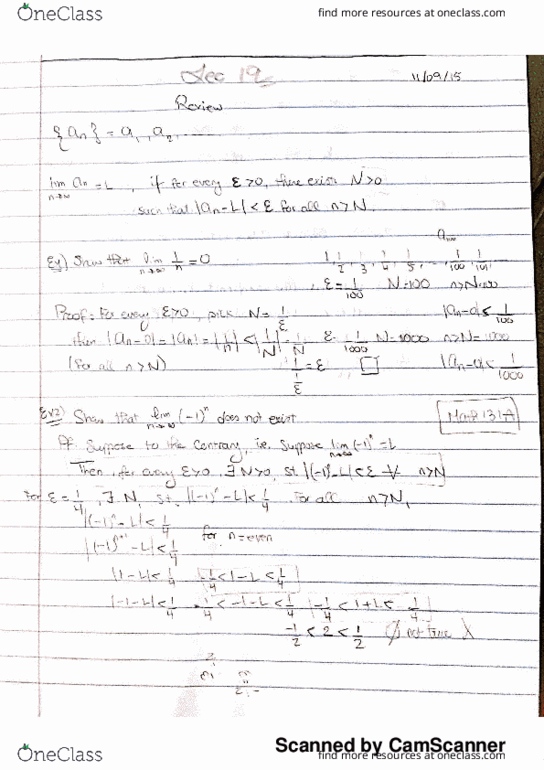 OneClass
find more resources at oneclass.com
11/09/15
Review
{an} = a1, a2, ......
lim an = L, if for every ε>0, there exists N>0
n→∞
such that |an-L| < ε for all n>N
Ex) Show that lim 1/n = 0
n→∞
1, 1/2, 1/3, 1/4, 1/5, ..., 1/100, 1/101
ε = 1/100 N=100 n>N=100
Proof: For every ε>0, pick N = 1/ε
|an-0| < 1/100
then |an-0| = |an| = |1/n| < |1/N| = 1/N
ε = 1/1000 N=1000 n>N=1000
(For all n>N)
1/(1/ε) = ε □
|an-0| < 1/1000
Ex2) Show that lim (-1)^n does not exist
n→∞
Math 131A
Pf. Suppose to the contrary, i.e. suppose lim (-1)^n = L
n→∞
Then, for every ε>0, ∃ N>0, st. |(-1)^n-L| < ε ∀ n>N
For ε = 1/4, ∃ N, st. |(-1)^n - L| < 1/4 for all n>N,
|(-1)^n - L| < 1/4
|(-1)^n+1 - L| < 1/4 for n=even
|1-L| < 1/4 -1/4 < 1-L < 1/4
|-1-L| < 1/4 -1/4 < -1-L < 1/4 -1/4 < 1+L < 1/4
-1/2 < 2 < 1/2 not true
Scanned by CamScanner
OneClass
find more resources at oneclass.com